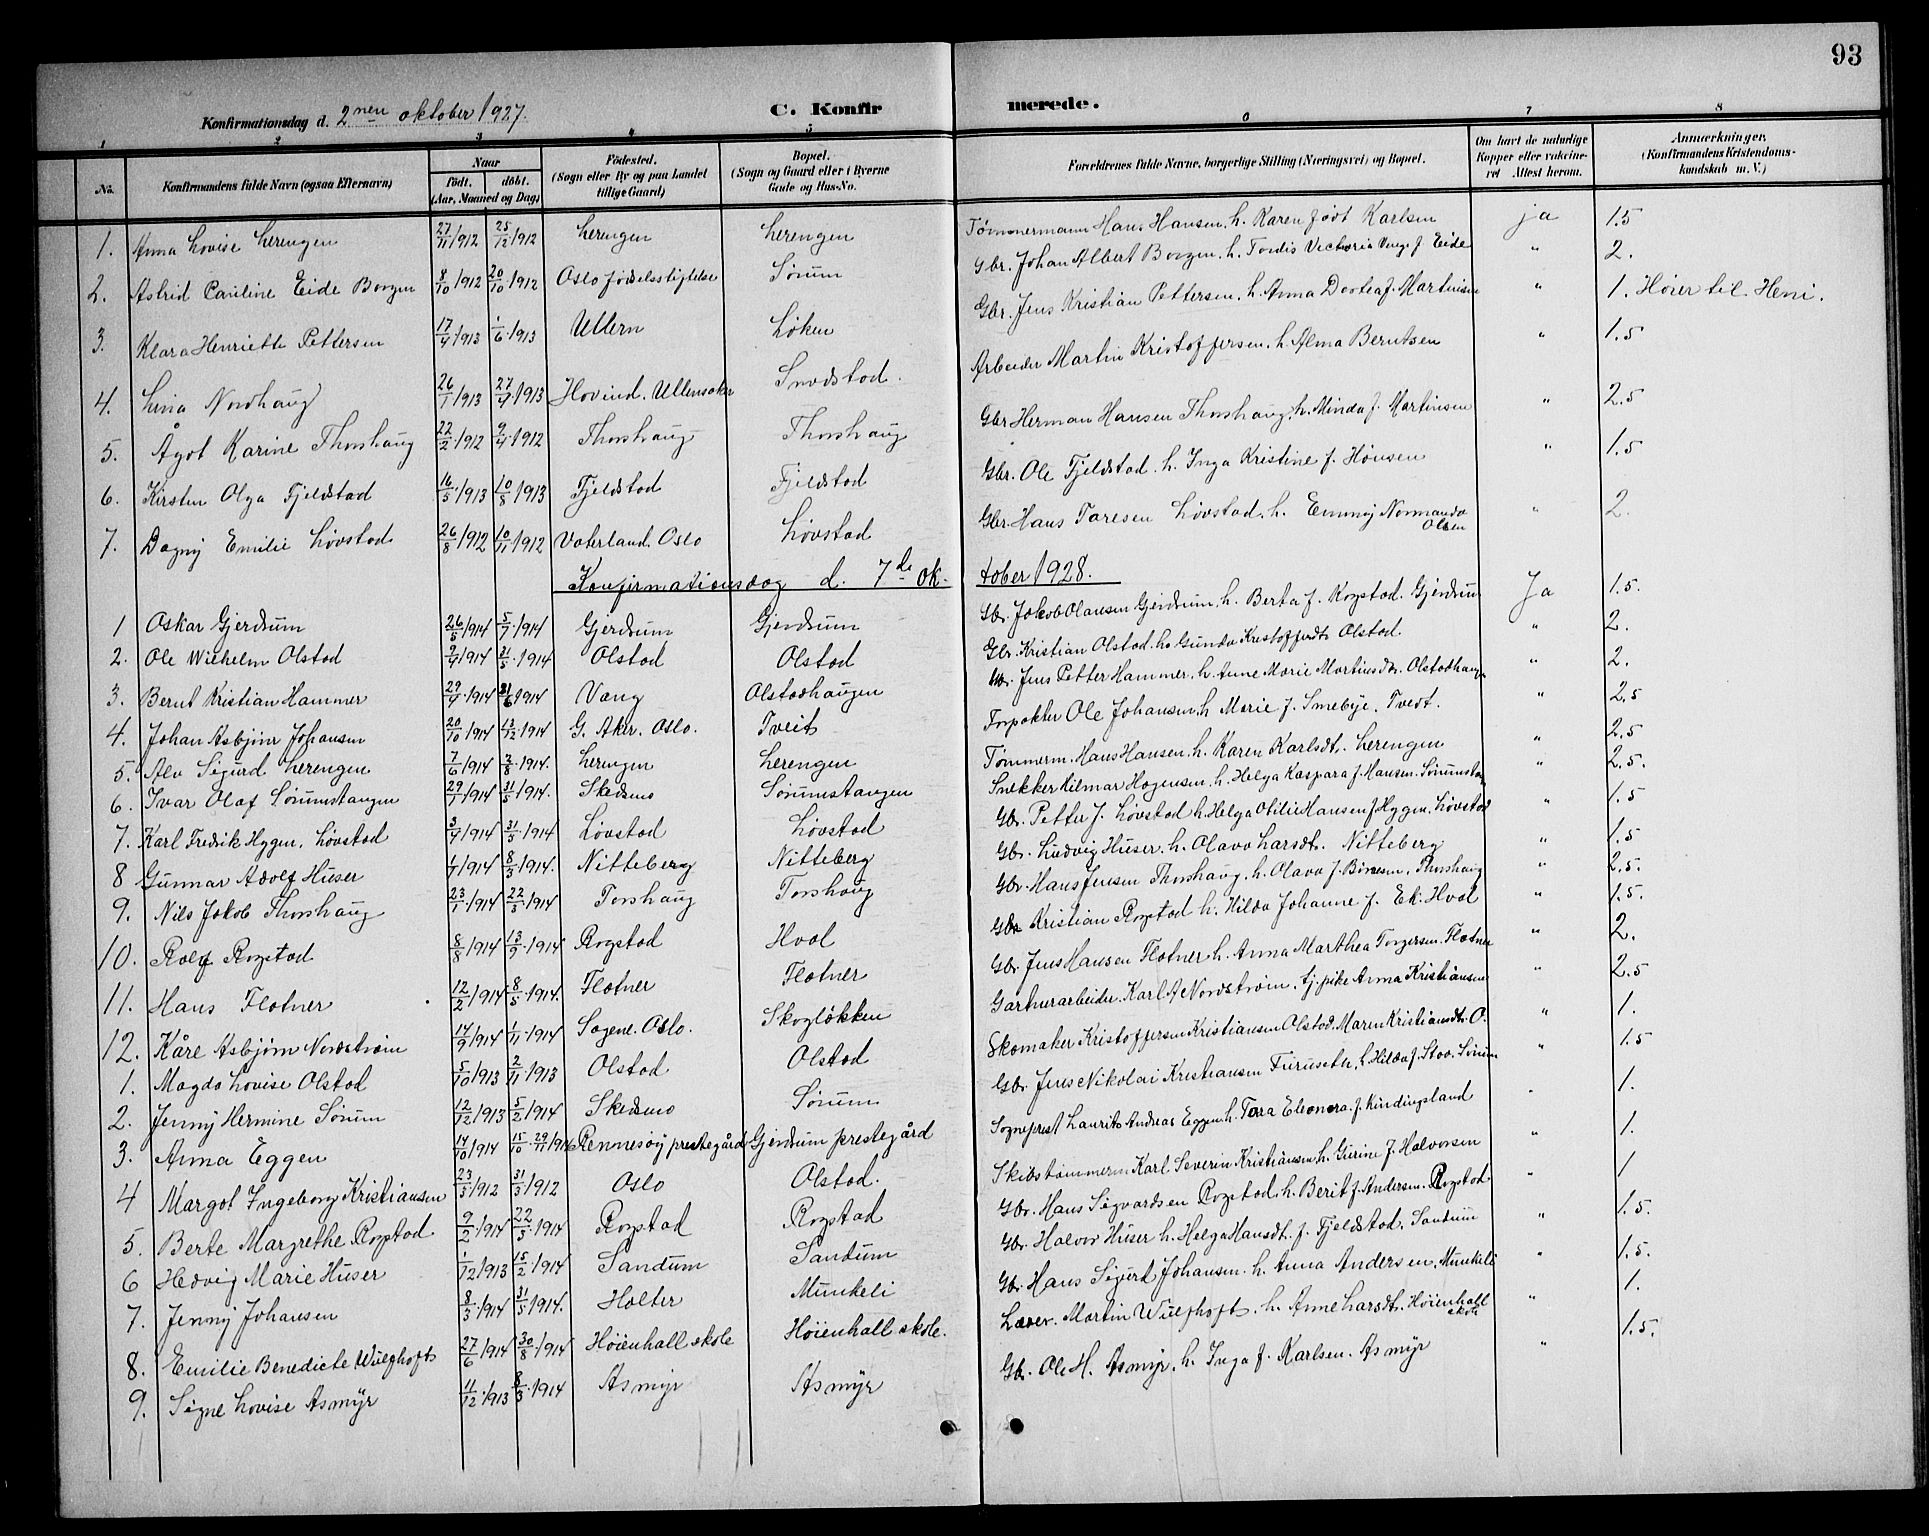 93
Konfirmationsdag d. 2nen oktober 1927.
C. Konfirmerede.
1 2 3 4 5 6 7 8
No.
Konfirmandens fulde Navn (ogsaa Efternavn)
Naar født. døbt. (Aar, Maaned og Dag)
Fødested. (Sogn eller By og paa Landet tillige Gaard)
Bopæl. (Sogn og Gaard eller i Byerne Gade og Hus-No.
Forældrenes fulde Navne, borgerlige Stilling (Næringsvei) og Bopæl.
Om havt de naturlige Kopper eller vaccineret Attest herom.
Anmærkninger, (Konfirmandens Kristendomskundskab m. V.)
1. Anna Lovise Lerengen 27/11 1912 25/12 1912 Lerengen Lerengen Tømmermann Hans Hansen, h. Karen født Karlsen ja 1.5
2. Astrid Pauline Eide Borgen 8/10 1912 20/10 1912 Oslo fødselsstiftelse Sørum Gbr. Johan Albert Borgen. h. Tordis Victoria f. Eide " 2.
3. Klara Henriette Pettersen 17/4 1913 1/6 1913 Ullern Løken Gbr. Jens Kristian Pettersen. h. Anna Dortea f. Martinsen " 1. Hører til Heni.
4. Lina Nordhaug 26/1 1913 27/4 1913 Hovind. Ullensaker Smedstad. Arbeider Martin Kristoffersen. h. Alma Berntsen " 1.5
5. Ågot Karine Thorshaug 22/2 1912 9/4 1912 Thorshaug Thorshaug Gbr Herman Hansen Thorshaug, h. Minda f. Martinsen " 2.5
6. Kirsten Olga Fjeldstad 16/5 1913 10/8 1913 Fjeldstad Fjeldstad Gbr. Ole Fjeldstad. h. Inga Kristine f. Hønsen " 1.5
7. Dagny Emilie Løvstad 26/8 1912 10/11 1912 Vaterland. Oslo Løvstad Gbr. Hans Taresen Løvstad. h. Emmy Normanda Olsen " 2.
Konfirmationsdag d. 7de oktober 1928.
1 Oskar Gjerdrum 26/5 1914 5/7 1914 Gjerdrum Gjerdrum Gbr. Jakob Olausen Gjerdrum. h. Berta f. Rogstad. Gjerdrum Ja 1.5.
2. Ole Wilhelm Olstad 9/4 1914 31/5 1914 Olstad Olstad Gbr. Kristian Olstad. h. Gunda Kristoffersdt. Olstad. " 2.
3. Bernt Kristian Hammer 29/4 1914 21/6 1914 Vang Olstadhaugen Gbr. Jens Petter Hammer. h. Anne Marie Martinsdt. Olstadhaugen " 2.
4. Johan Asbjørn Johansen 20/10 1914 13/12 1914 G. Aker. Oslo. Tveit Forpakter Ole Johansen h Marie f. Smebye. Tvedt. " 2.5
5. Alv Sigurd Lerengen 7/6 1914 2/8 1914. Lerengen Lerengen Tømmerm. Hans Hansen. h. Karen Karlsdt. Lerengen " 2.5
6. Ivar Olaf Sørumstangen 29/1 1914 31/5 1914. Skedsmo Sørumstangen Snekker Hilmar Hagensen. h. Helga Kaspara f. Hansen. Sørumstang " 2.5.
7. Karl Fredrik Hygen. Løvstad 3/4 1914 31/5 1914 Løvstad Løvstad Gbr. Petter J. Løvstad h. Helga Otilie Hansen f. Hygen. Løvstad " 1.5
8 Gunnar Adolf Huser 1/1 1914 8/3 1914. Nitteberg Nitteberg Gbr. Ludvig Huser. h. Olava Larsdt. Nitteberg " 1.5
9. Nils Jakob Thorshaug 23/1 1914 22/3 1914 Torshaug Torshaug Gbr. Hans Jensen Thorshaug. h. Olava f. Bønsen. Thorshaug " 2.5.
10. Rolf Rogstad 8/8 1914 13/9 1914 Rogstad Hval Gbr Kristian Rogstad h. Hilda Johanne f. Ek. Hval " 1.5.
11. Hans Flatner 12/2 1914 8/5 1914. Flatner Flatner Gbr. Jens Hansen Flatner h. Anna Marthea Torgersen. Flatner " 2.
12. Kåre Asbjørn Nordstrøm 14/9 1914 1/11 1914 Sagene. Oslo. Skogløkken Gartnerarbeider Karl A Nordstrøm. tj. pike Anna Kristiansen " 2.5
1. Magda Lovise Olstad 5/10 1913 2/11 1913 Olstad Olstad Skomaker Kristoffersen Kristiansen Olstad. Maren Kristiansdt. O. " 1.
2. Jenny Hermine Sørum 12/12 1913 5/2 1914 Skedsmo Sørum Gbr. Jens Nikolai Kristiansen Furuseth. h. Hilda f. Stav. Sørum " 1.5
3. Anna Eggen 14/10 1914 15/10 29/11 1914 Rennesøy prestegård Gjerdrum prestegård Sogneprest Laurits Andreas Eggen h. Tora Eleonora f. Kindingsland " 1.
4 Margot Ingeborg Kristiansen 23/3 1912 31/3 1912 Oslo Olstad. Skibstømmerm. Karl Severin Kristiansen h. Gurine f. Halvorsen " 1.
5. Berte Margrethe Rogstad 9/2 1914 22/3 1914 Rogstad Rogstad Gbr. Hans Sigvardsen Rogstad. h. Berit f. Andersen. Rogstad " 1
6 Hedvig Marie Huser 1/12 1913 15/2 1914 Sandum Sandum Gbr. Halvor Huser h. Helga Hansdt. f. Fjeldstad. Sandum " 1.5.
7. Jenny Johansen 8/3 1914 31/5 1914. Holter Munkeli Gbr. Hans Sigurd Johansen. h. Anna Andersen. Munkeli " 1.5.
8. Emilie Benedicte Wulfhoft 27/6 1914 30/8 1914 Høienhall skole Høienhall skole. Lærer. Martin Wulfhoft. h. Anne Larsdt. Høienhall skole " 1.
9. Signe Lovise Asmyr 11/12 1913 8/3 1914 Asmyr Asmyr Gbr. Ole H. Asmyr. h. Inga f. Karlsen. Asmyr " 1.5.